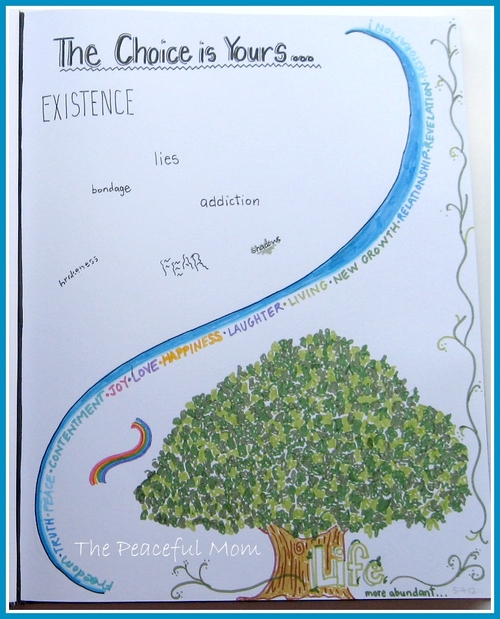 The Choice is Yours...
EXISTENCE
lies
bondage
addiction
shadows
FEAR
Freedom·TRUTH·PEACE·CONTENTMENT·JOY·LOVE·HAPPINESS·LAUGHTER·LIVING·NEW GROWTH·RELATIONSHIP·REVELATION
The Peaceful Mom
Life
more abundant...